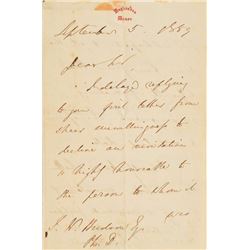 September 5. 1859
Dear Sir,
I delayed replying
to your first letter from
sheer unwillingness to
decline an invitation
so highly honourable to
the person to whom it
was
J. W. Hudson Esq
Ph. D.